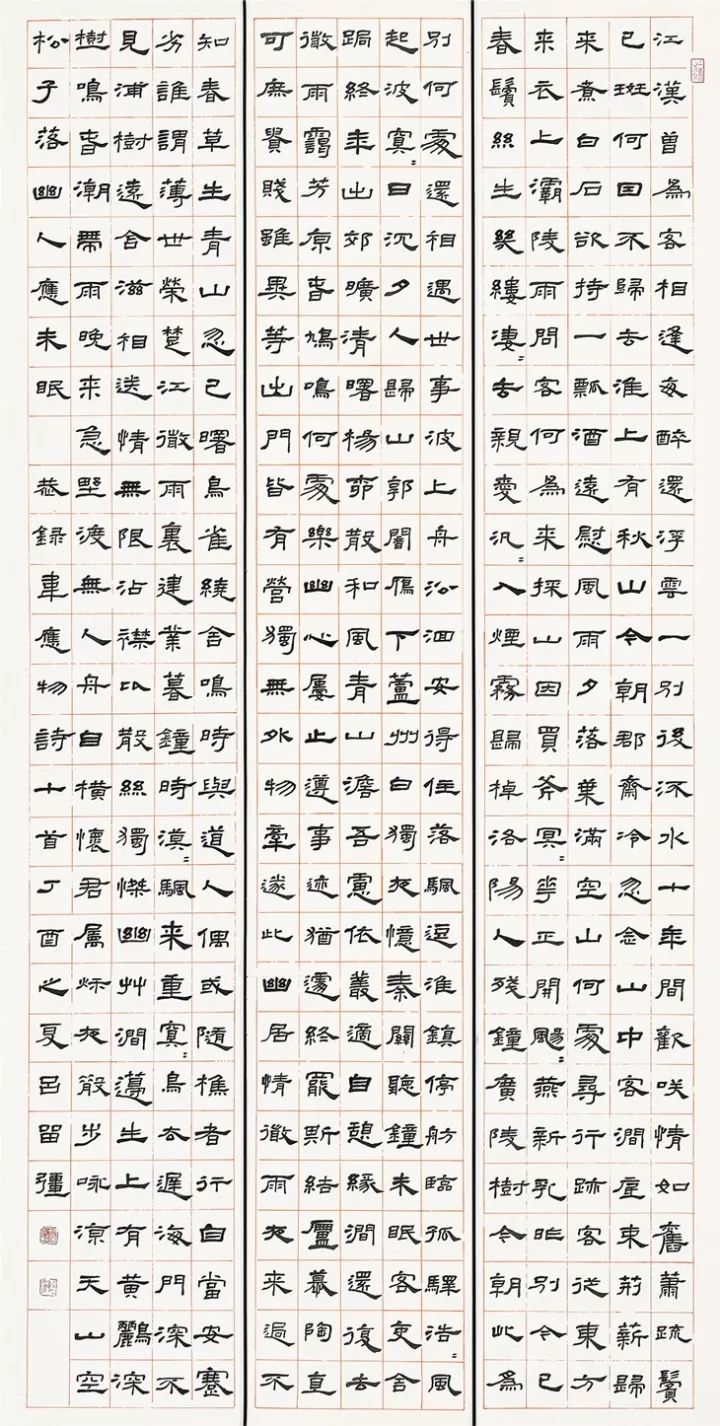 江漢曾為客相逢每醉還浮雲一別後流水十年間歡咲情如舊蕭疏鬢
已斑何因不歸去淮上有秋山今朝郡齋冷忽念山中客澗底束荊薪歸
来煮白石欲持一瓢酒遠慰風雨夕落葉滿空山何處尋行跡客從東方
来衣上灞陵雨問客何為来採山因買斧冥〻花正開颺〻燕新乳昨別今已
春鬢絲生幾縷凄〻去親愛汎〻入煙霧歸棹洛陽人殘鐘廣陵樹今朝此為
別何處還相遇世事波上舟沿洄安得住落颿逗淮鎮停舫臨孤驛浩〻風
起波寞〻日沉夕人歸山郭闇雁下蘆洲白獨夜憶秦關聽鐘未眠客吏舍
跼終年出郊曠清曙楊柳散和風青山澹吾慮依叢適自憩緣澗還復去
微雨靄芳原春鳩鳴何處樂幽心屢止遵事迹猶遽終罷斯結廬慕陶直
可庶貴賤雖異等出門皆有營獨無外物牽遂此幽居情微雨夜来過不
知春草生青山忽已曙鳥雀繞舍鳴時與道人偶或隨樵者行自當安蹇
劣誰謂薄世榮楚江微雨裏建業暮鐘時漠〻颿来重寞〻鳥去遲海門深不
見浦樹遠含滋相送情無限沾襟比散絲獨憐幽艸澗邊生上有黃鸝深
樹鳴春潮帶雨晚来急野渡無人舟自橫懷君屬秋夜散步詠涼天山空
松子落幽人應未眠 恭録韋應物詩十首丁酉之夏呂留彊